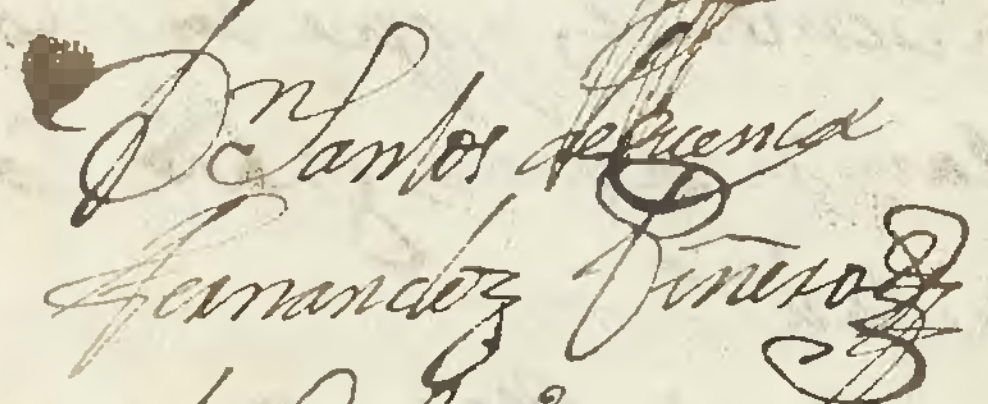 Dn Santos de Cuenca
Fernandez Piñero